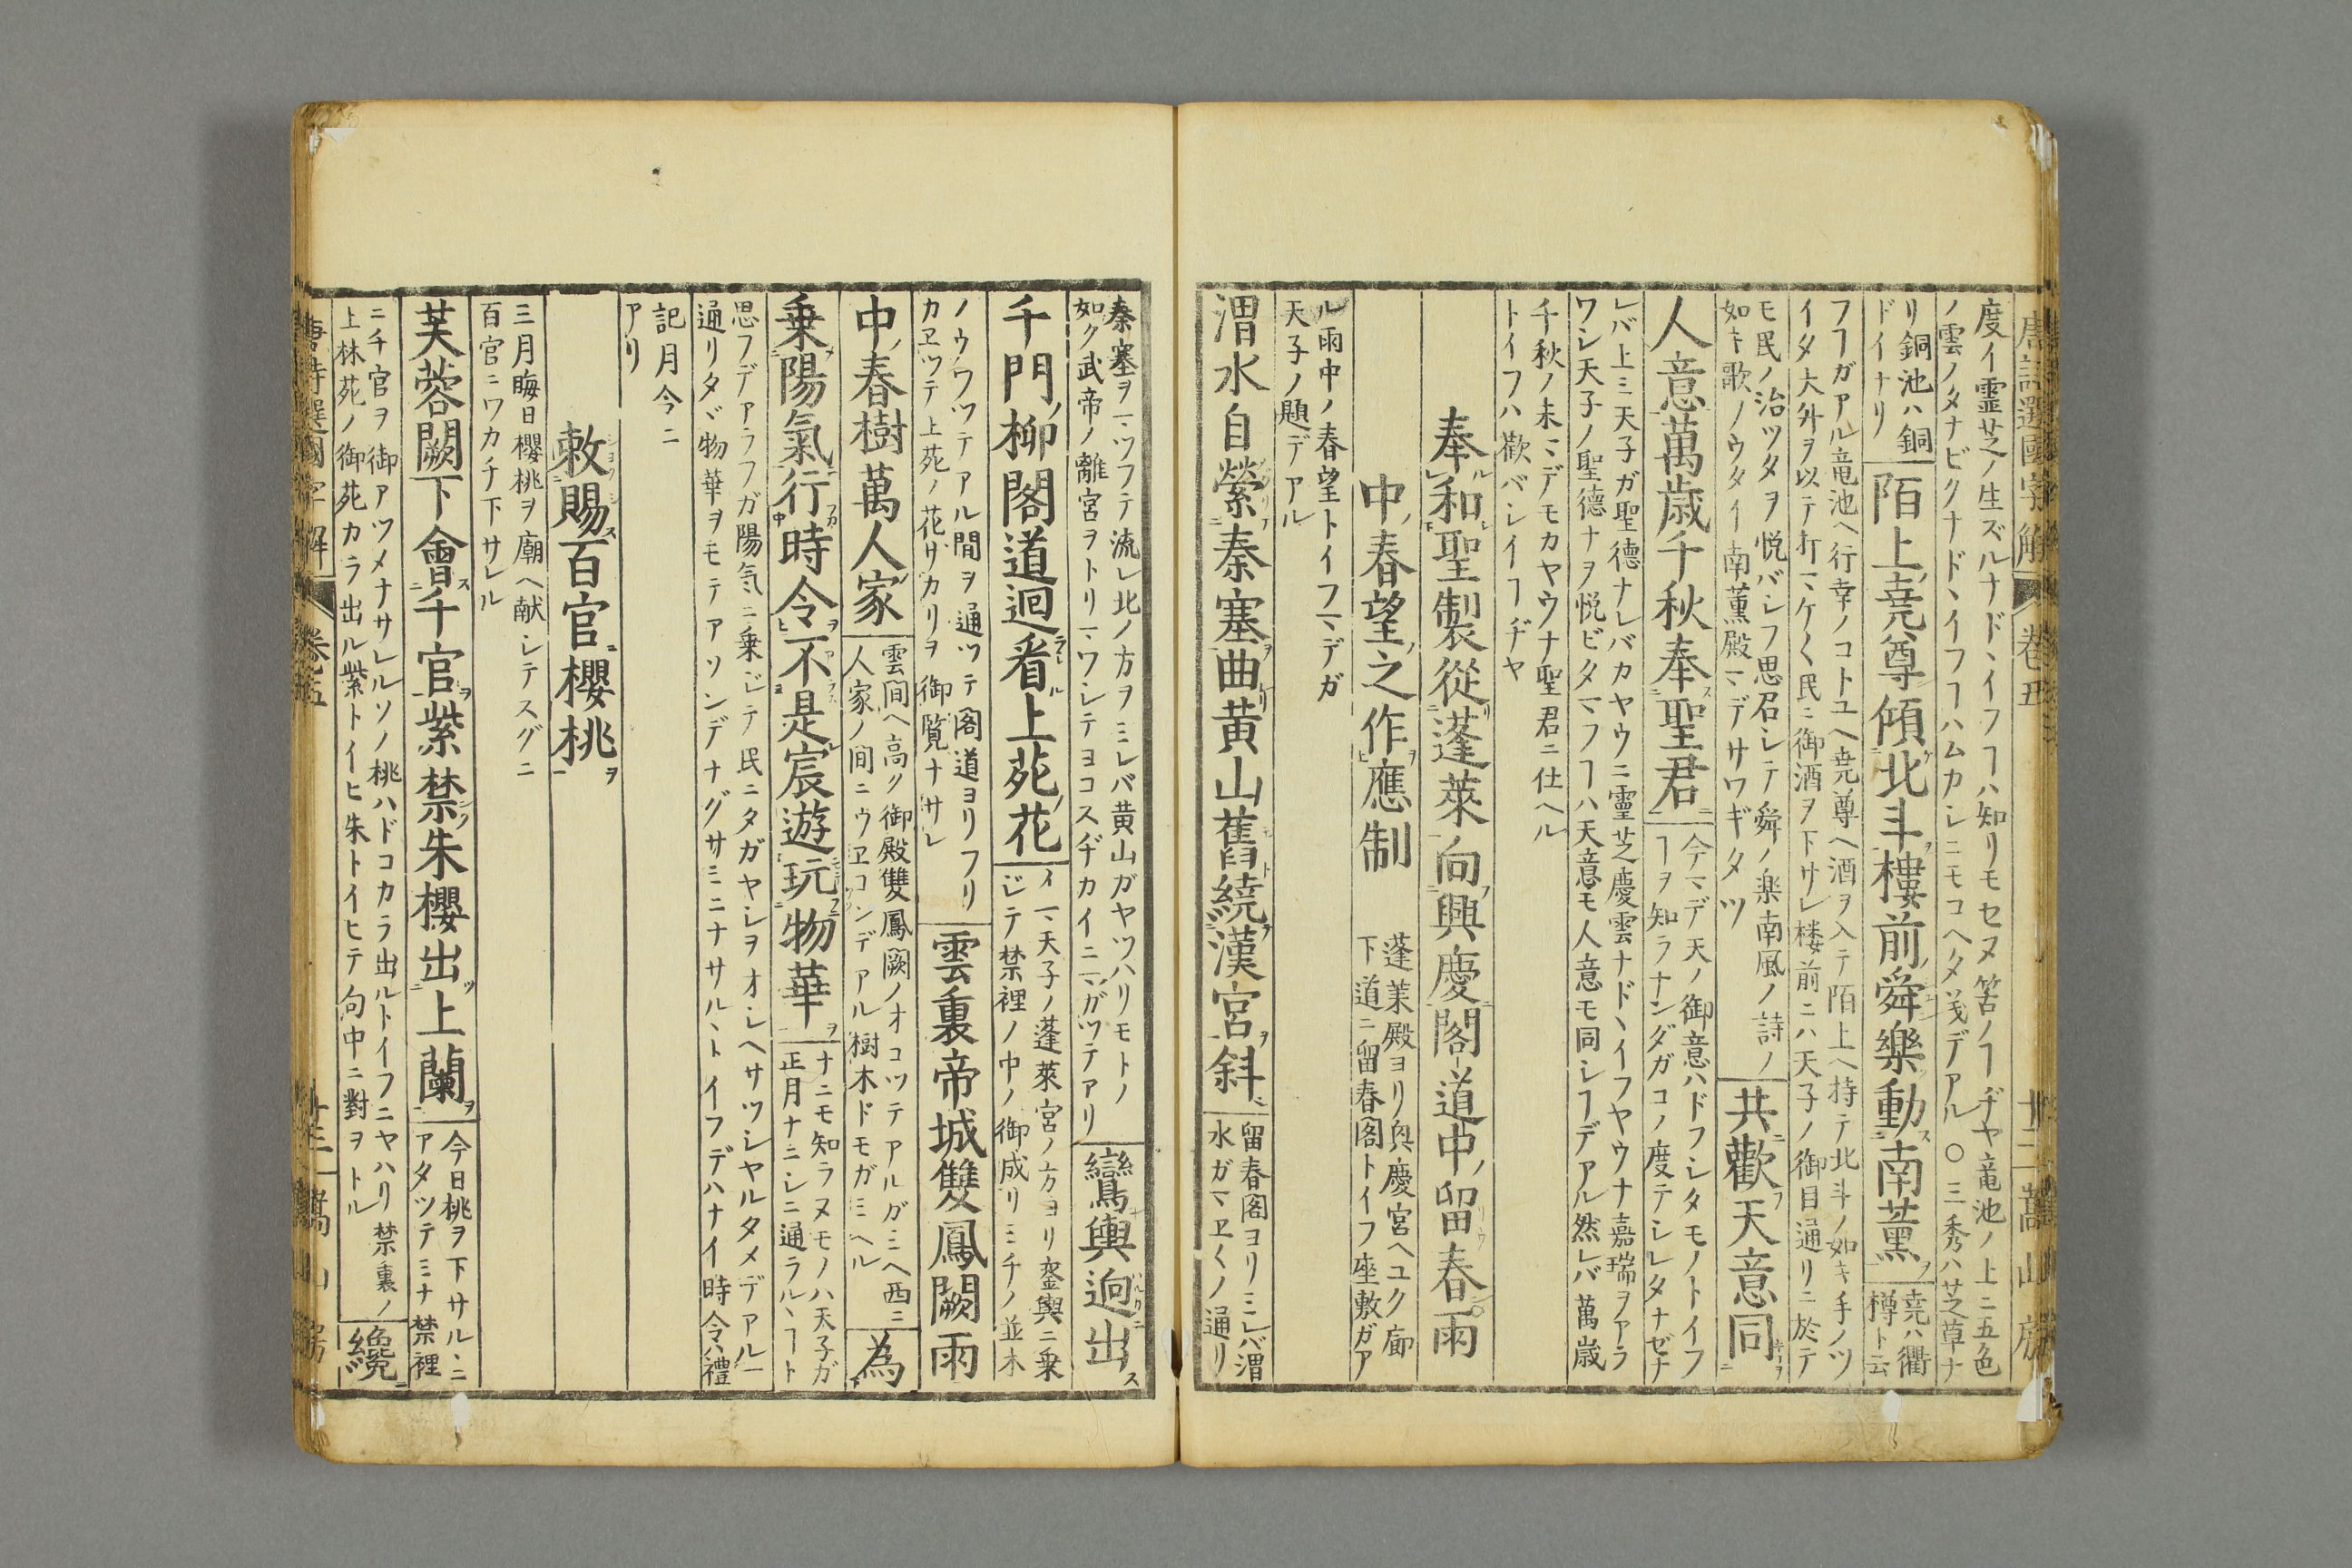 唐詩選國字解 卷五
度イ霊芝ノ生ズルナド、イフヿハ知リモセヌ筈ノヿヂヤ竜池ノ上ニ五色
ノ雲ノタナビクナド、イフヿハムカシニモコヘタ義デアル○三秀ハ芝草ナ
リ銅池ハ銅
ドイナリ
陌上堯尊傾北斗樓前舜樂動南薫
堯ハ衢
樽ト云
フヿガアル竜池ヘ行幸ノコトユヘ堯尊ヘ酒ヲ入テ陌上ヘ持テ北斗ノ如キ手ノツ
イタ大舛ヲ以テ打マケ〱民ニ御酒ヲ下サレ楼前ニハ天子ノ御目通リニ於テ
モ民ノ治ツタヲ悦バレフ思召シテ舜ノ楽南風ノ詩ノ
如キ歌ノウタイ南薫殿マデサワギタツ
共歡天意同
人意萬歳千秋奉聖君
今マデ天ノ御意ハドフシタモノトイフ
ヿヲ知ラナンダガコノ度テシレタナゼナ
レバ上ミ天子ガ聖德ナレバカヤウニ靈芝慶雲ナド、イフヤウナ嘉瑞ヲアラ
ワシ天子ノ聖德ナヲ悦ビタマフヿハ天意モ人意モ同シヿデアル然レバ萬歳
千秋ノ末マデモカヤウナ聖君ニ仕ヘル
トイフハ歡バシイヿヂヤ
奉和聖製從蓬萊向興慶閣道中留春雨
中春望之作應制
蓬莱殿ヨリ興慶宮ヘユク廊
下道ニ留春閣トイフ座敷ガア
ル雨中ノ春望トイフマデガ
天子ノ題デアル
渭水自縈秦塞曲黄山舊繞漢宮斜
留春閣ヨリミレバ渭
水ガマヱ〱ノ通リ
秦塞ヲマツフテ流レ北ノ方ヲミレバ黄山ガヤツハリモトノ
如ク武帝ノ離宮ヲトリマワシテヨコスヂカイニマガツテアリ
鸞輿逈出
千門柳閣道迴看上苑花
イマ天子ノ蓬萊宮ノ方ヨリ鑾輿ニ乗
ジテ禁裡ノ中ノ御成リミチノ並木
ノウワツテアル間ヲ通ツテ閣道ヨリフリ
カヱツテ上苑ノ花サカリヲ御覧ナサレ
雲裏帝城雙鳳闕雨
中春樹萬人家
雲間ヘ高ク御殿雙鳳闕ノオコツテアルガミヘ西ニ
人家ノ間ニウヱコンデアル樹木ドモガミヘル
為
乗陽氣行時令不是宸遊玩物華
ナニモ知ラヌモノハ天子ガ
正月ナニシニ通ラル、ヿト
思フデアラフガ陽気ニ乗ジテ民ニタガヤシヲオシヘサツシヤルタメデアルー
通リタヾ物華ヲモテアソンデナグサミニナサル、トイフデハナイ時令ハ禮
記月今ニ
アリ
敕賜百官櫻桃
三月晦日櫻桃ヲ廟ヘ献シテスグニ
百官ニワカチ下サレル
芙蓉闕下會千官紫禁朱櫻出上蘭
今日桃ヲ下サル、ニ
アタツテミナ禁裡
ニ千官ヲ御アツメナサレルソノ桃ハドコカラ出ルトイフニヤハリ禁裏ノ
上林苑ノ御苑カラ出ル紫トイヒ朱トイヒテ句中ニ對ヲトル
纔
唐詩選國字解 卷五